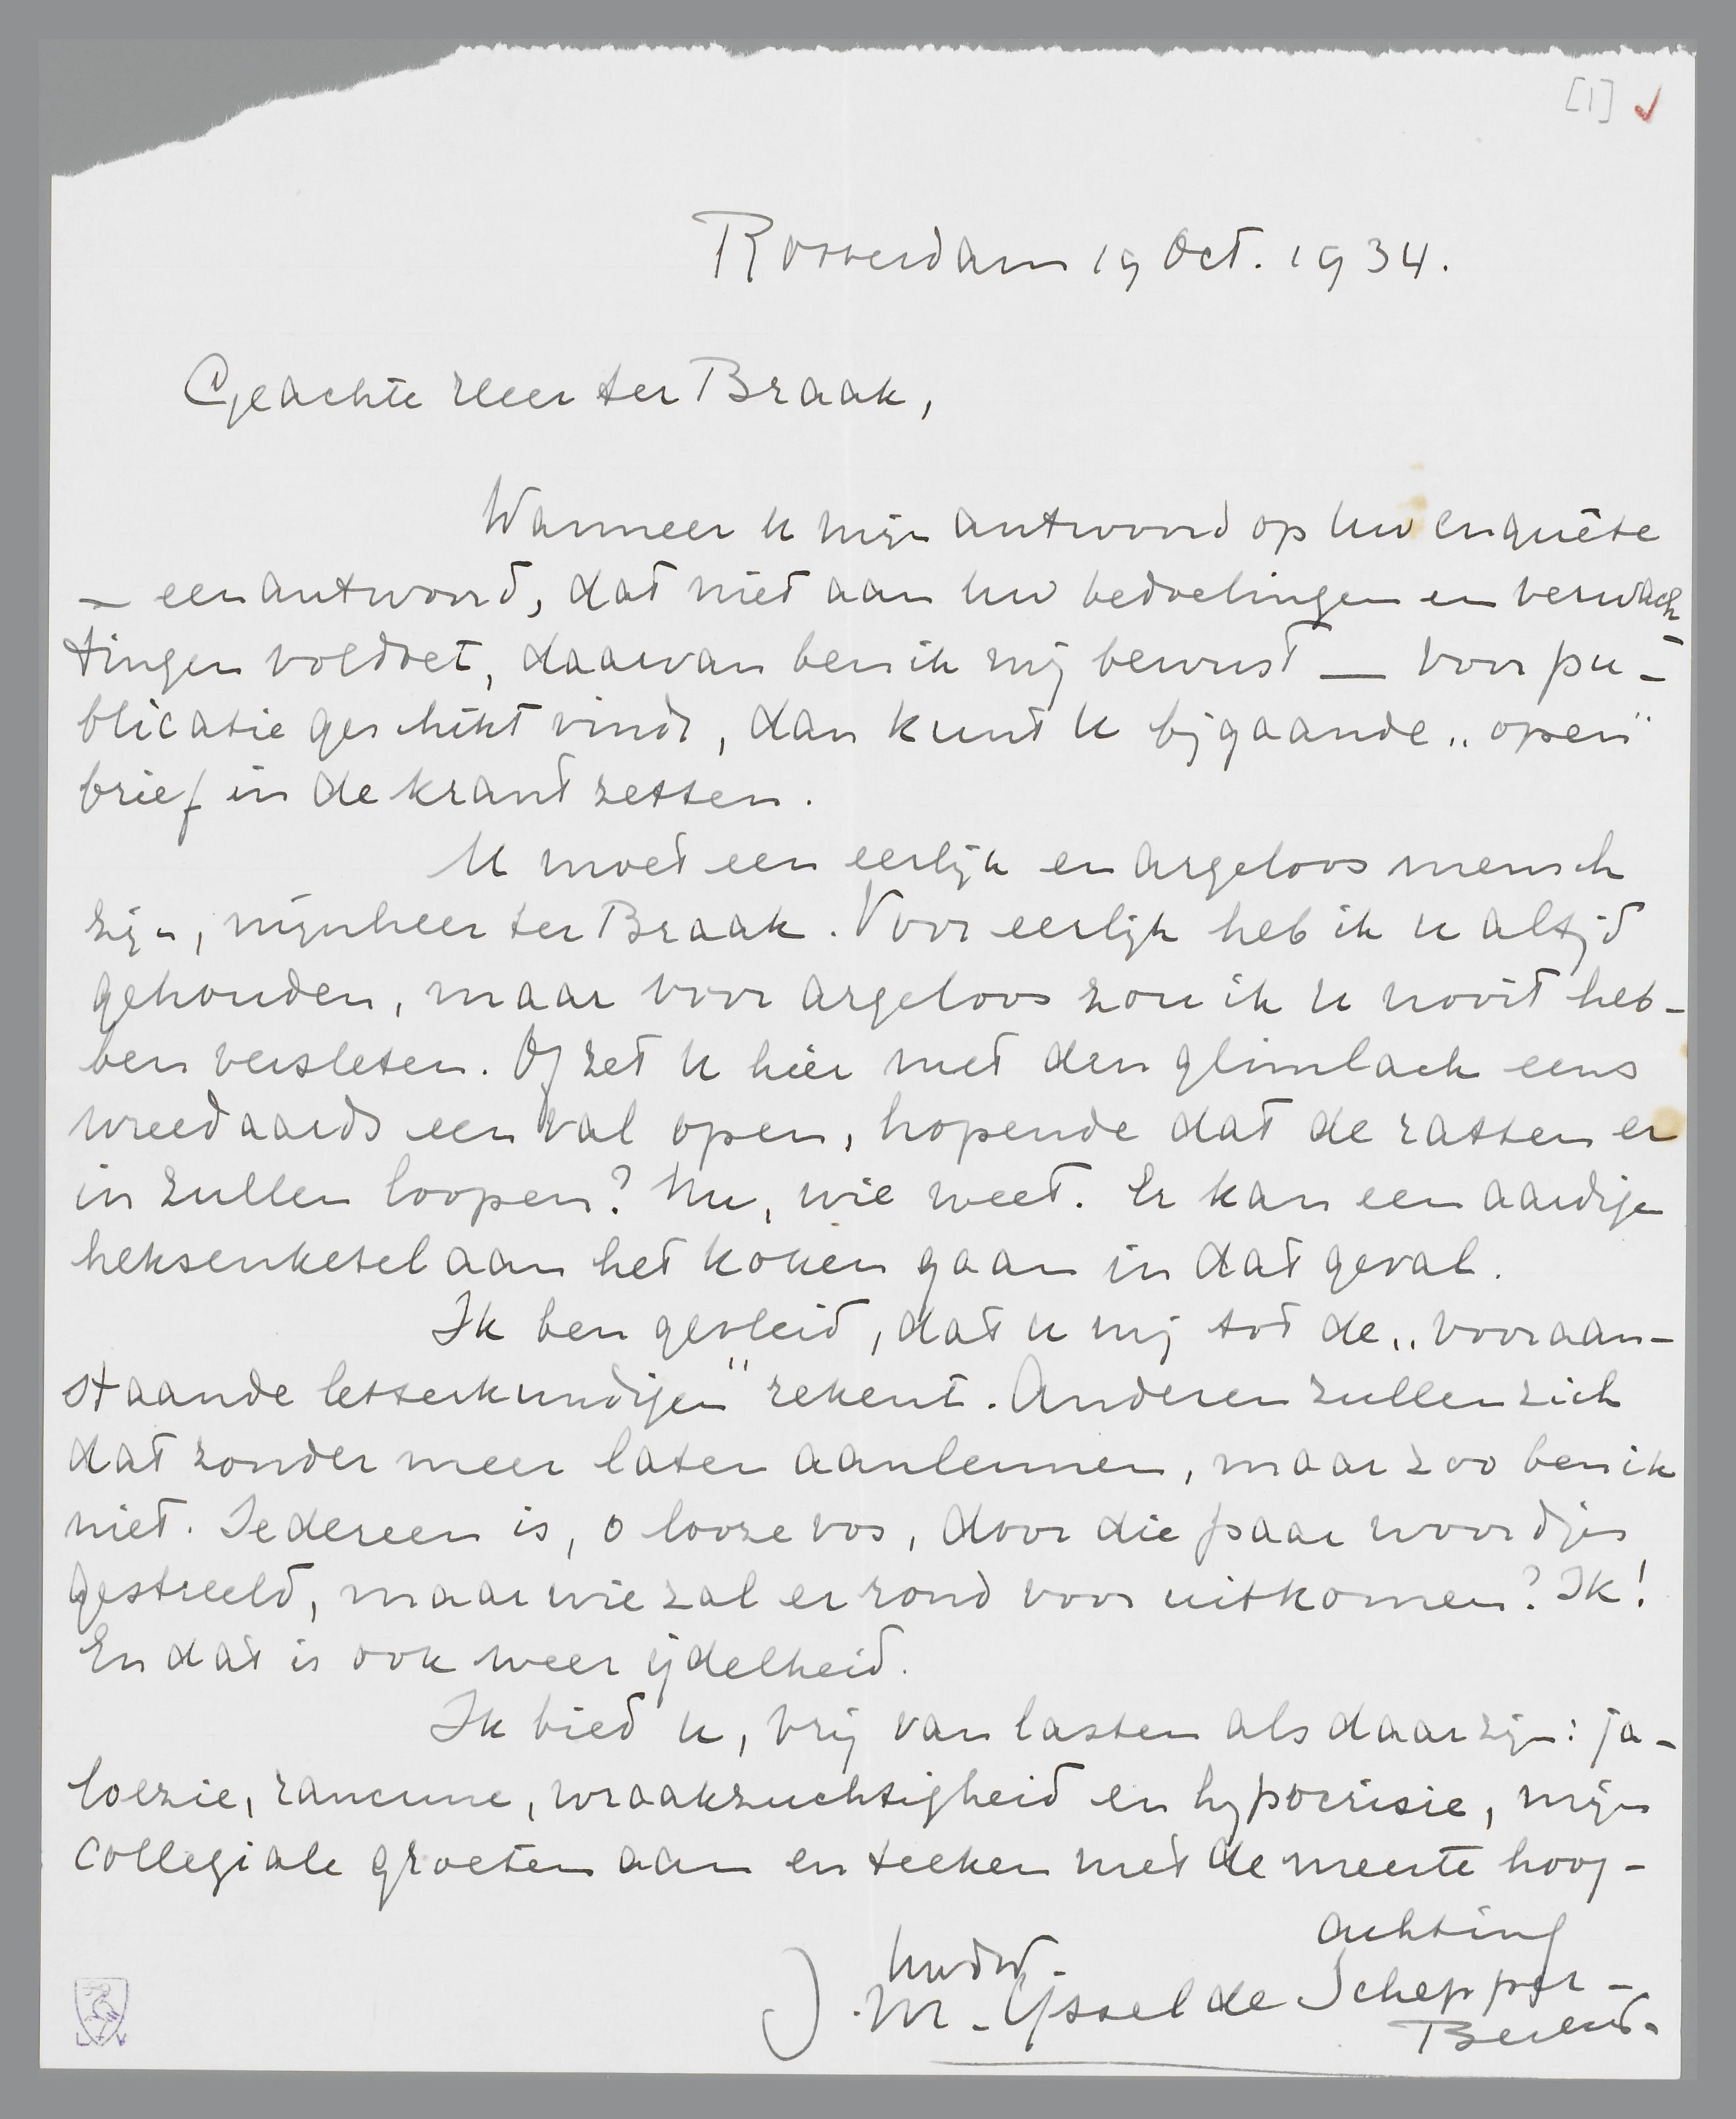 [1] ✓
Rotterdam 19 Oct. 1934.
Geachte Heer ter Braak,
Wanneer u mijn antwoord op uw enquête
— een antwoord, dat niet aan uw bedoelingen en verwach
tingen voldoet, daarvan ben ik mij bewust — voor pu-
blicatie geschikt vindt, dan kunt u bijgaande „open"
brief in de krant zetten.
U moet een eerlijk en argeloos mensch
zijn, mijnheer ter Braak. Voor eerlijk heb ik u altijd
gehouden, maar voor argeloos zou ik u nooit heb-
ben versleten. Of zet u hier met den glimlach eens
wreedaards een val open, hopende dat de ratten er
in zullen loopen? Nu, wie weet. Er kan een aardige
heksenketel aan het koken gaan in dat geval.
Ik ben gevleid, dat u mij tot de „vooraan-
staande letterkundigen" rekent. Anderen zullen zich
dat zonder meer laten aanleunen, maar zoo ben ik
niet. Iedereen is, o looze vos, door die paar woordjes
gestreeld, maar wie zal er rond voor uitkomen? Ik!
En dàt is ook weer ijdelheid.
Ik bied u, vrij van lasten als daar zijn: ja-
loezie, rancune, wraakzuchtigheid en hypocrisie, mijn
collegiale groeten aan en teeken met de meeste hoog-
achting
Uwdw.
J. M. IJssel de Schepper-
Becker.
L V